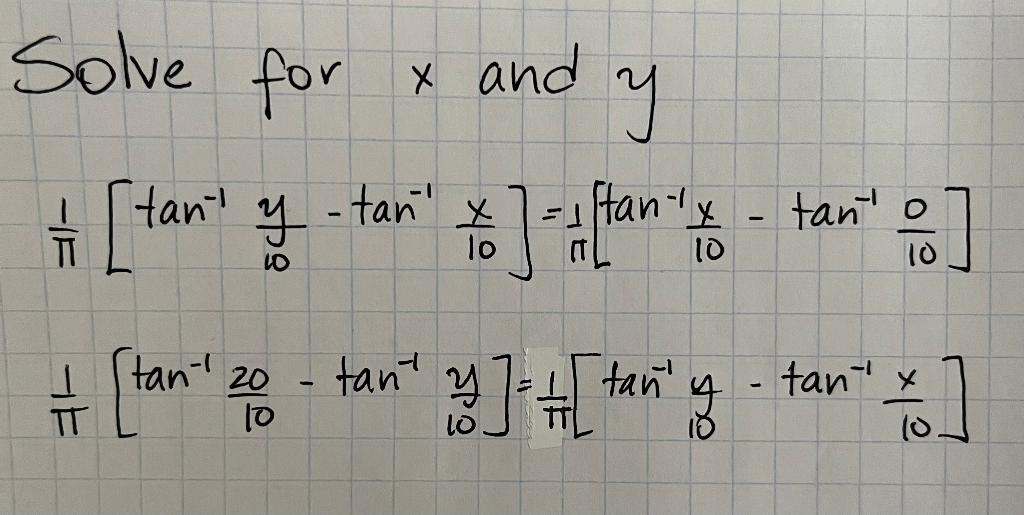 Solve for x and y
1/π [tan⁻¹ y/10 - tan⁻¹ x/10] = 1/π [tan⁻¹ x/10 - tan⁻¹ 0/10]
1/π [tan⁻¹ 20/10 - tan⁻¹ y/10] = 1/π [tan⁻¹ y/10 - tan⁻¹ x/10]